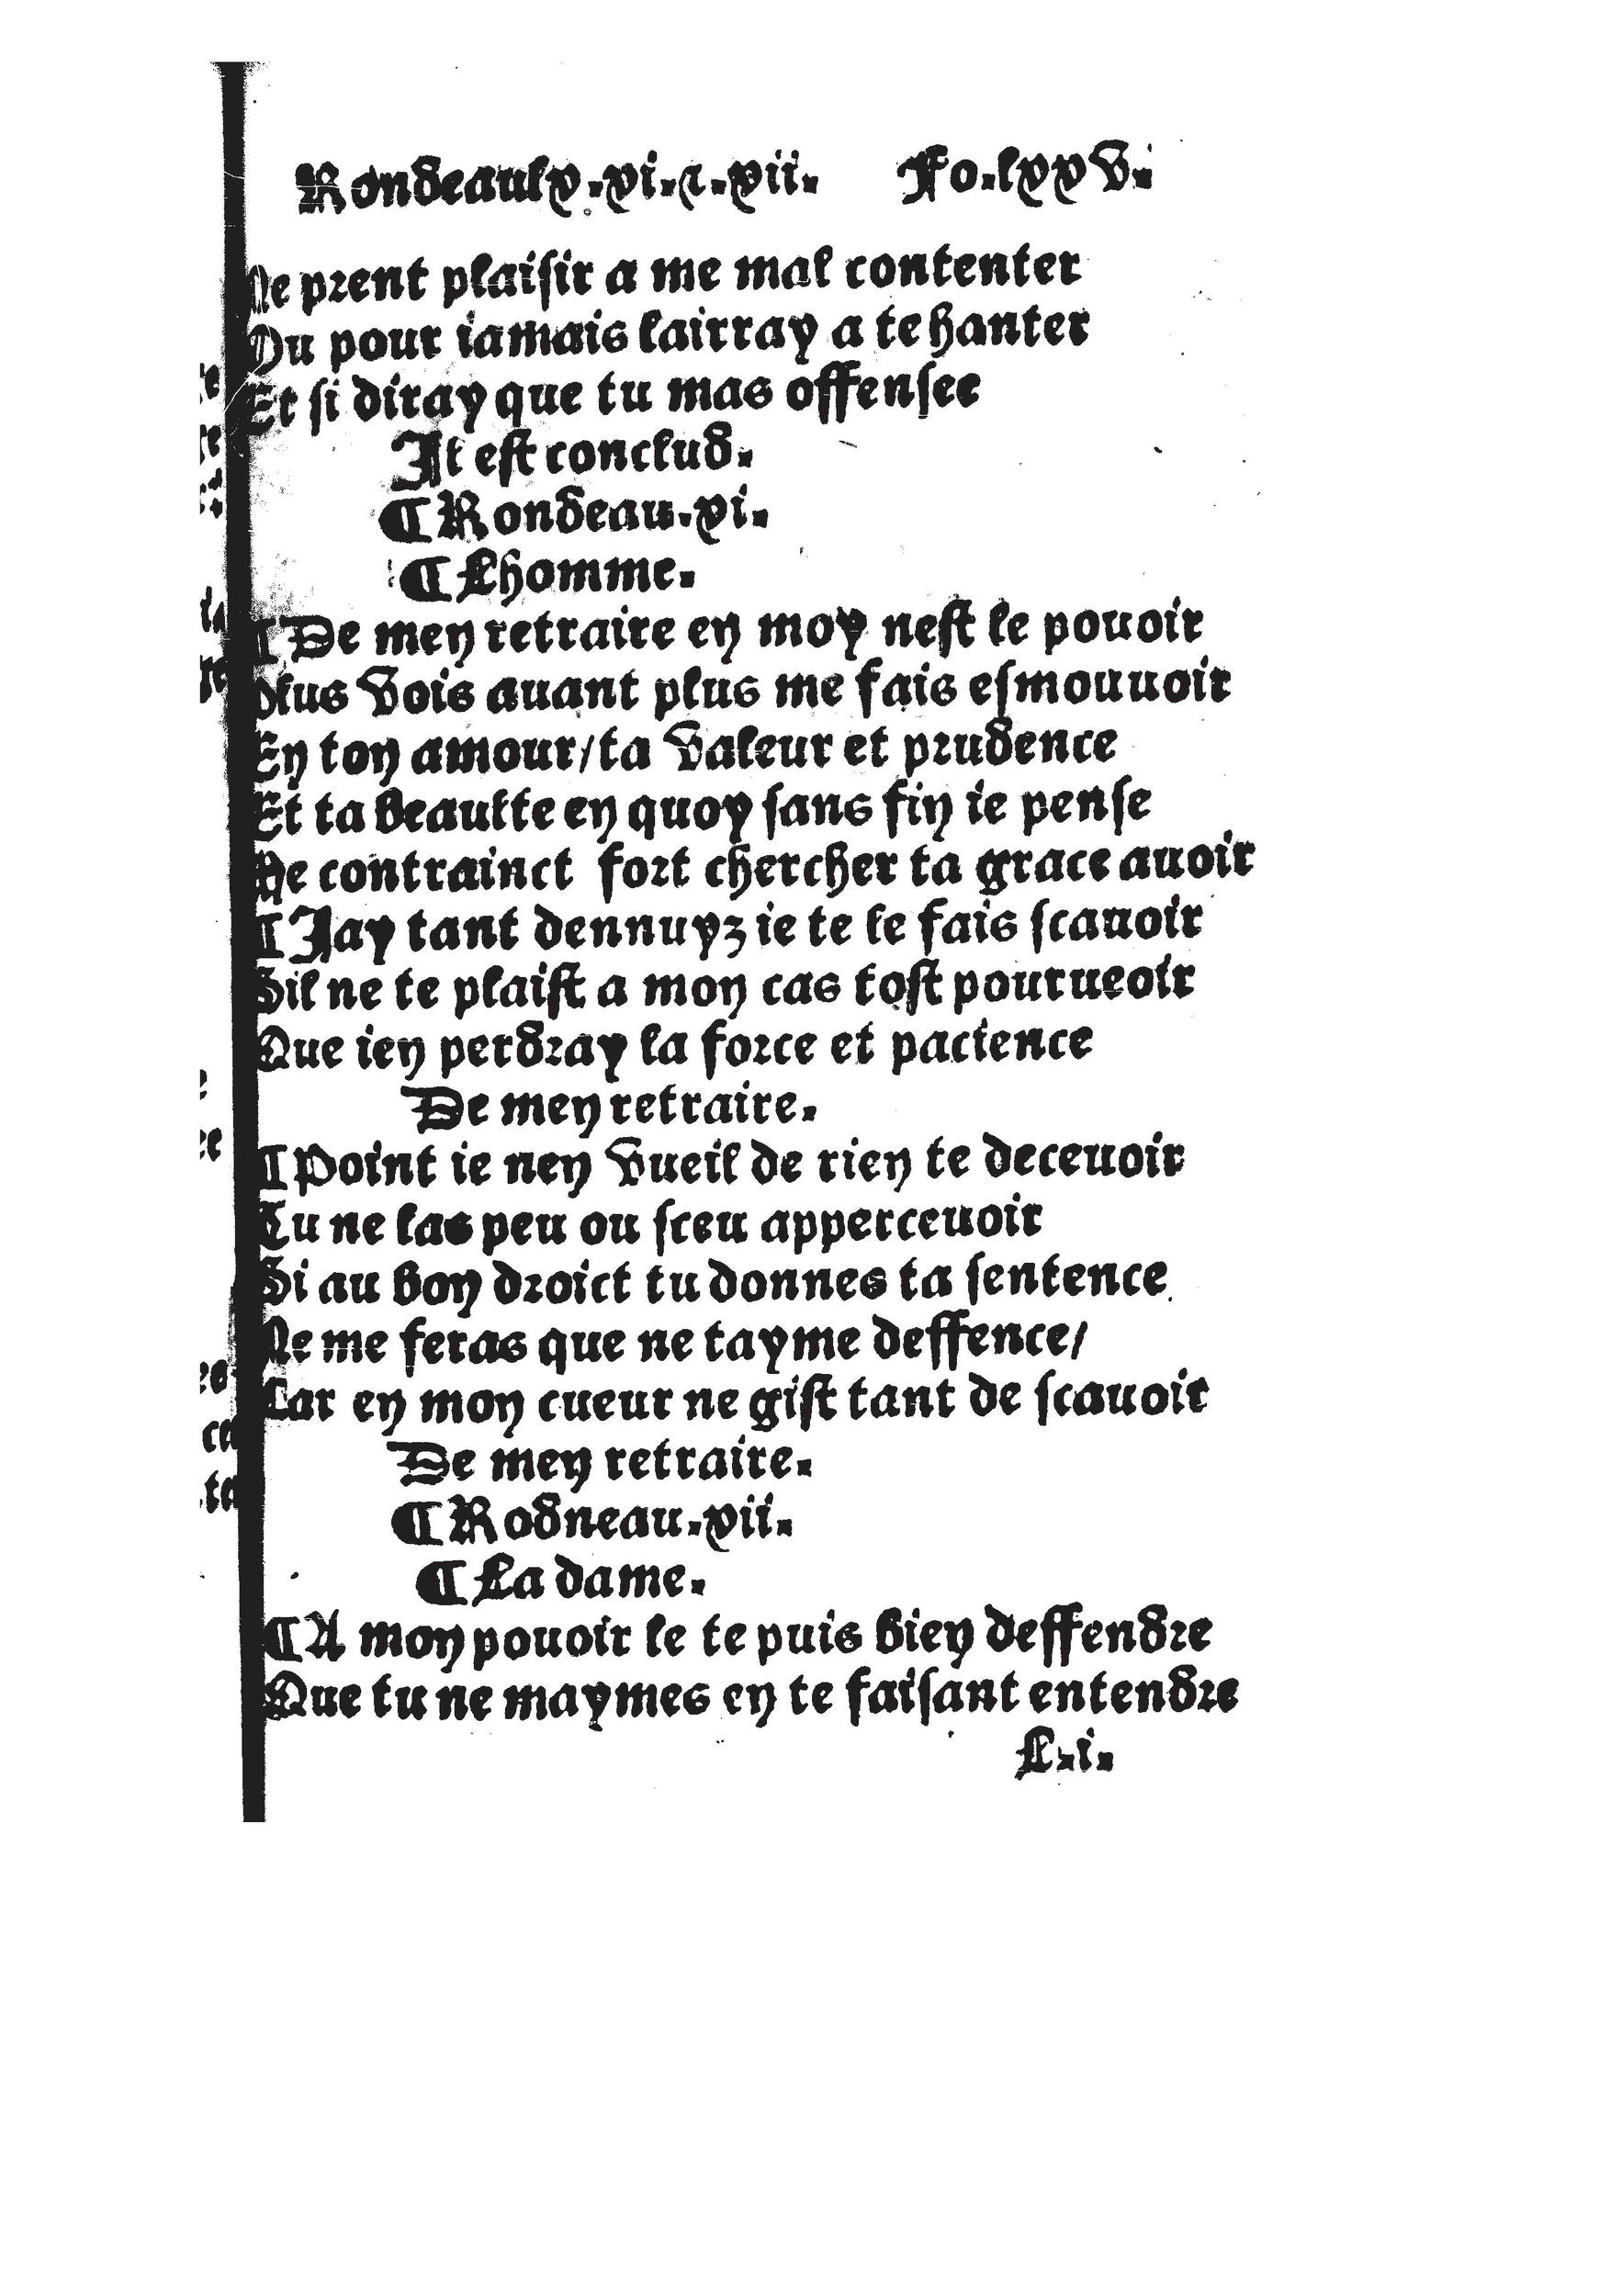 Rondeaulx.xi.⁊.xii. Fo.lxxv.
Ne prent plaiſir a me mal contenter
Ou pour iamais lairray a te hanter
Et ſi diray que tu mas offenſee
Il eſt conclud.
¶ Rondeau.xi.
¶ Lhomme.
¶ De men retraire en moy neſt le pouoir
Plus vois auant plus me fais eſmouuoir
En ton amour/ta valeur et prudence
Et ta beaulte en quoy ſans fin ie penſe
Me contrainct fort chercher ta grace auoir
¶ Jay tant dennuyz ie te le fais ſcauoir
Sil ne te plaiſt a mon cas toſt pourueoir
Que ien perdray la force et pacience
De men retraire.
¶ Point ie nen vueil de rien te deceuoir
Tu ne las peu ou ſceu apperceuoir
Si au bon droict tu donnes ta ſentence
Ne me feras que ne tayme deffence/
Car en mon cueur ne giſt tant de ſcauoir
De men retraire.
¶ Rodneau.xii.
¶ La dame.
¶ A mon pouoir le te puis bien deffendre
Que tu ne maymes en te faiſant entendre
L.i.